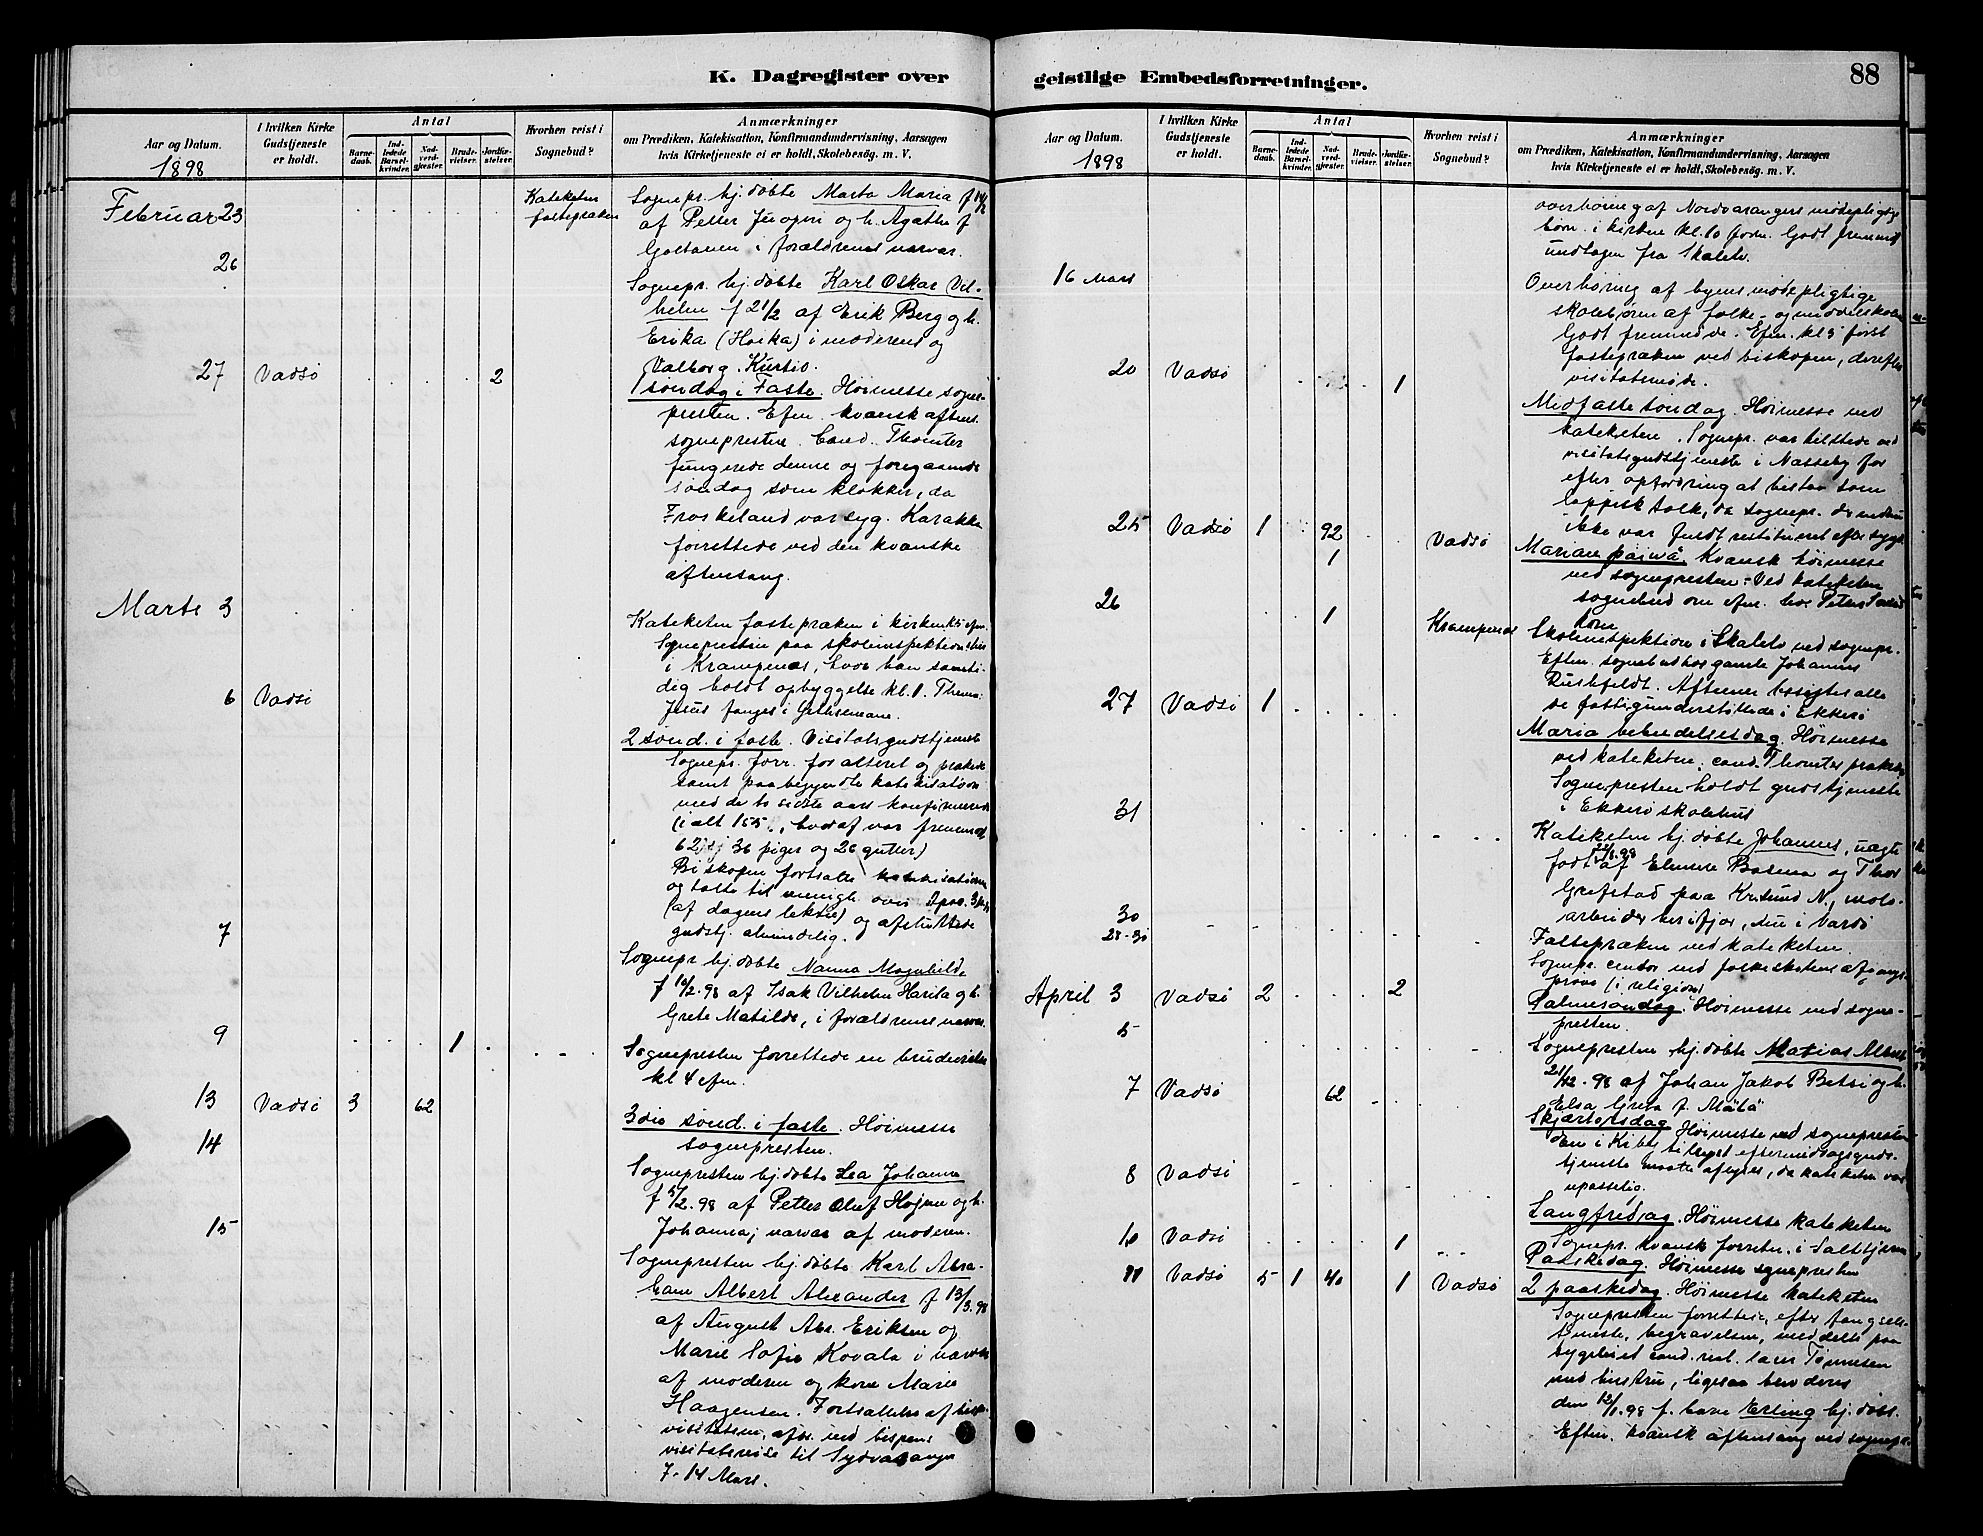 K. Dagregister over
Aar og Datum.
1898
I hvilken Kirke
Gudstjeneste
er holdt.
Antal
Barne-
daab.
Ind-
ledede
Barsel-
kvinder.
Nad-
verd-
gjester.
Brude-
vielser.
Jordfæ-
stelser.
Hvorhen reist i
Sognebud?
Anmærkninger
om Prædiken, Katekisation, Konfirmandundervisning, Aarsagen
hvis Kirketjeneste ei er holdt, Skolebesøg. m. V.
Februar 23
Kateketen
fastepræken
Sognepr. hj. døbte Marta Maria f
af Petter
i forældrenes nærvær.
26
Sognepr. hj. døbte Karl Oskar Vil-
helm f 21/2 af Erik Berg og h.
Erika (Hoika) i moderens og
Valborg Kurtis.
27 Vadsø 2
1 søndag i Faste. Høimesse sogne-
presten. Efm. kvænsk aftens.
sognepresten. Cand. Thomter
fungerede denne og foregaaende
søndag som klokker, da
Froskeland var syg. Karakka
forrettede ved den kvænske
aftensang.
Marts 3
Kateketen fastepræken i kirken
Sognepresten paa skoleinspektion
i Krampenæs, hvor han samti-
dig holdt opbyggelse kl. 1. Thema:
Jesus fanges i Gethsemane.
6 Vadsø
2 sønd. i faste. Visitatsgudstjeneste
Sognepr. forr. for alteret og prækede
samt paabegyndte katekisation
med de to sidste aars konfirmerede
(ialt 155, hvoraf var fremmødt
62, 36 piger og 26 gutter)
Biskopen fortsatte katekisationen
og talte til menigh. over Apoc. 3
(af dagens lektie) og afsluttede
gudstj. almindelig.
7
Sognepr hj. døbte Nanna Magnhilde
f 10/2.98 af Isak Vilhelm Harila og h.
Grete Matilde, i forældrenes nærvær.
9 1
Sognepresten forrettede en brudevielse
kl 4 efm.
13 Vadsø 3 62
3die sønd. i faste. Høimesse
sognepresten.
14
Sognepresten hj. døbte Lea Johanna
f 5/2.98 af Petter Oluf Hojem og h.
Johanna; nærvær af moderen.
15
Sognepresten hj. døbte Karl Abra-
ham Albert Alexander f 13/3.98
af August Abr. Eriksen og
Marie Sofie Kovala i nærvær
af moderen og kone Maren
Haagensen. Fortsættelse af bispe-
visitatsen, afbr. ved bispens
visitatsreise til Sydvaranger
7-14 Mars.
geistlige Embedsforretninger.
88
Aar og Datum.
1898
I hvilken Kirke
Gudstjeneste
er holdt.
Antal
Barne-
daab.
Ind-
ledede
Barsel-
kvinder.
Nad-
verd-
gjester.
Brude-
vielser.
Jordfæ-
stelser.
Hvorhen reist i
Sognebud?
Anmærkninger
om Prædiken, Katekisation, Konfirmandundervisning, Aarsagen
hvis Kirketjeneste ei er holdt, Skolebesøg. m. V.
overhøring af Nordvarangers mødepligtige
børn i kirken kl. 10 form. Godt fremmøde
undtagen fra Skalelv.
16 Mars
Overhøring af byens mødepligtige
skolebørn af folke- og middelskolen
Godt fremmøde. Efm. kl 5 først
fastepræken ved biskopen, derefter
visitatsmøde.
20 Vadsø 1
Midfastesøndag. Høimesse ved
kateketen. Sognepr. var tilstede ved
visitatsgudstjeneste i Næsseby for
efter opfordring at bistaa som
lappisk tolk, da sognepr. dernede
ikke var fuldt restitueret efter sygd.
25 Vadsø 1 92
1 Vadsø
Mariæ päivä. Kvænsk høimesse
ved sognepresten. Ved kateketen
sognebud om efm. hos Peter
26 1 Krampenæs
Skoleinspektion i Skalelv ved sognepr.
Eftm. sognebud hos gamle Johannes
Buchfeldt. Aftenen besigtes alle
de fattigunderstøttede i Ekkerø
27 Vadsø 1
Maria bebudelsesdag. Høimesse
ved kateketen; cand. Thomter præked
Sognepresten holdt gudstjeneste
i Ekkerø skolehus
31
Kateketen hj. døbte Johannes, uægte
født af Elmine Basma og Thor
Grefstad paa Kristiansund N., molo-
arbeider her ifjor, nu i Vardø
30
Fastepræken ved kateketen
28-30
Sognepr. censor ved folkeskolens afgangs-
prøve (i religion)
April 3 Vadsø 2 2
Palmesøndag. Høimesse ved sogne-
presten.
5
Sognepresten hj. døbte Matias Albert
21/12-98 af Johan Jakob Betsi og h.
Elsa Greta f. Mätä
7 Vadsø 62
Skjærtorsdag Høimesse ved sognepresten
Den i Kiby tillyst eftermiddagsguds-
tjeneste maatte aflyses, da kateketen var
upasselig.
8 Vadsø
Langfredag. Høimesse kateketen
Sognepr. kvænsk forretn. i Salttjern
10 Vadsø 1
Paaskedag. Høimesse sognepresten
11 Vadsø 5 1 40 1 Vadsø
2 paaskedag. Høimesse kateketen
Sognepresten forrettede, efter fængsels-
tjeneste, begravelsen, meddelte paa
sygeleiet cand. real. Lars Tønnesen
med hustru, ligesaa blev deres
den 12/1.98 f. barn Erling hj. døbt.
Eftm. kvænsk aftensang ved sognepr.